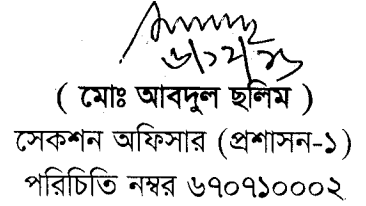 ৬/১২/২৩
( মোঃ আবদুল ছলিম )
সেকশন অফিসার (প্রশাসন-১)
পরিচিতি নম্বর ৬৭০৭১০০০২